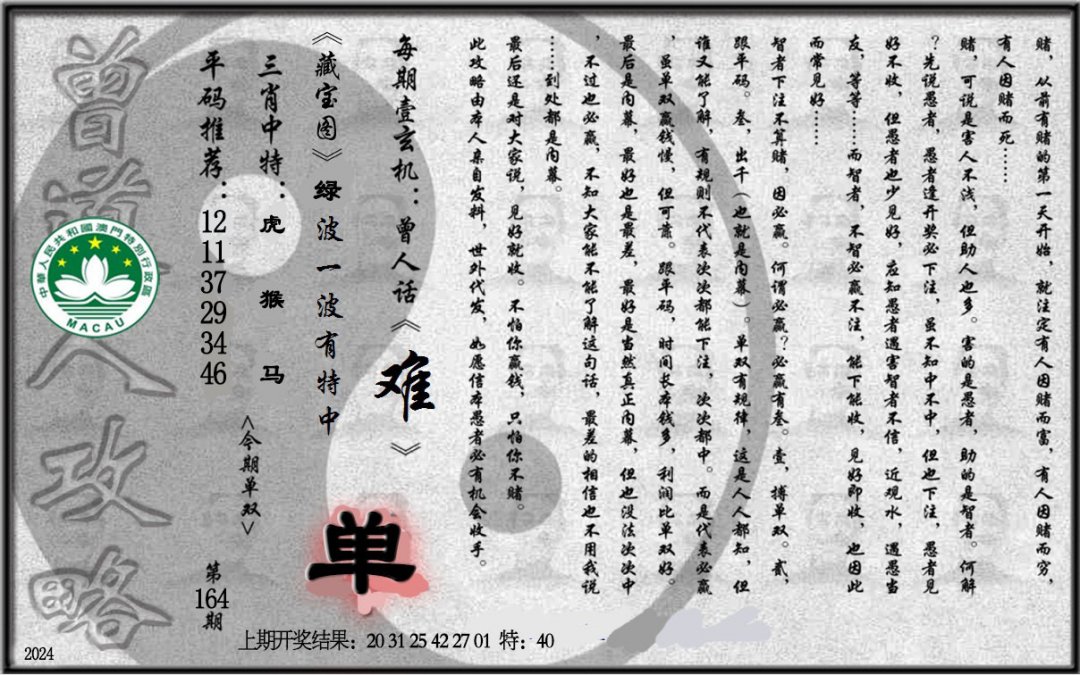 赌，从前有赌的第一天开始，就注定有人因赌而富，有人因赌而穷，
有人因赌而死……
赌，可说是害人不浅，但助人也多。害的是愚者，助的是智者。何解
？先说愚者，愚者逢开奖必下注，虽不知中不中，但也下注，愚者见
好不收，但愚者也少见好，应知愚者遇害智者不信，近观水，遇愚当
友，等等……而智者，不智必赢不注，能下能收，见好即收，也因此
而常见好……
智者下注不算赌，因必赢。何谓必赢？必赢有叁。壹，搏单双。贰，
跟平码。叁，出千（也就是内幕）。单双有规律，这是人人都知，但
谁又能了解，有规则不代表次次都能下注，次次都中。而是代表必赢
，虽单双赢钱慢，但可靠。跟平码，时间长本钱多，利润比单双好。
最后是内幕，最好也是最差，最好是当然真正内幕，但也没法次次中
，不过也必赢，不知大家能不能了解这句话，最差的相信也不用我说
……到处都是内幕。
最后还是对大家说，见好就收。不怕你赢钱，只怕你不赌。
此攻略由本人亲自发料，世外代发，如愿信本愚者必有机会收手。
每期壹玄机：曾人话《难》
《藏宝图》绿波一波有特中
单
三肖中特：虎 猴 马
<今期单双>
平码推荐：12 11 37 29 34 46
第164期
曾道人攻略
中華人民共和國澳門特別行政區
MACAU
上期开奖结果：20 31 25 42 27 01 特：40
2024